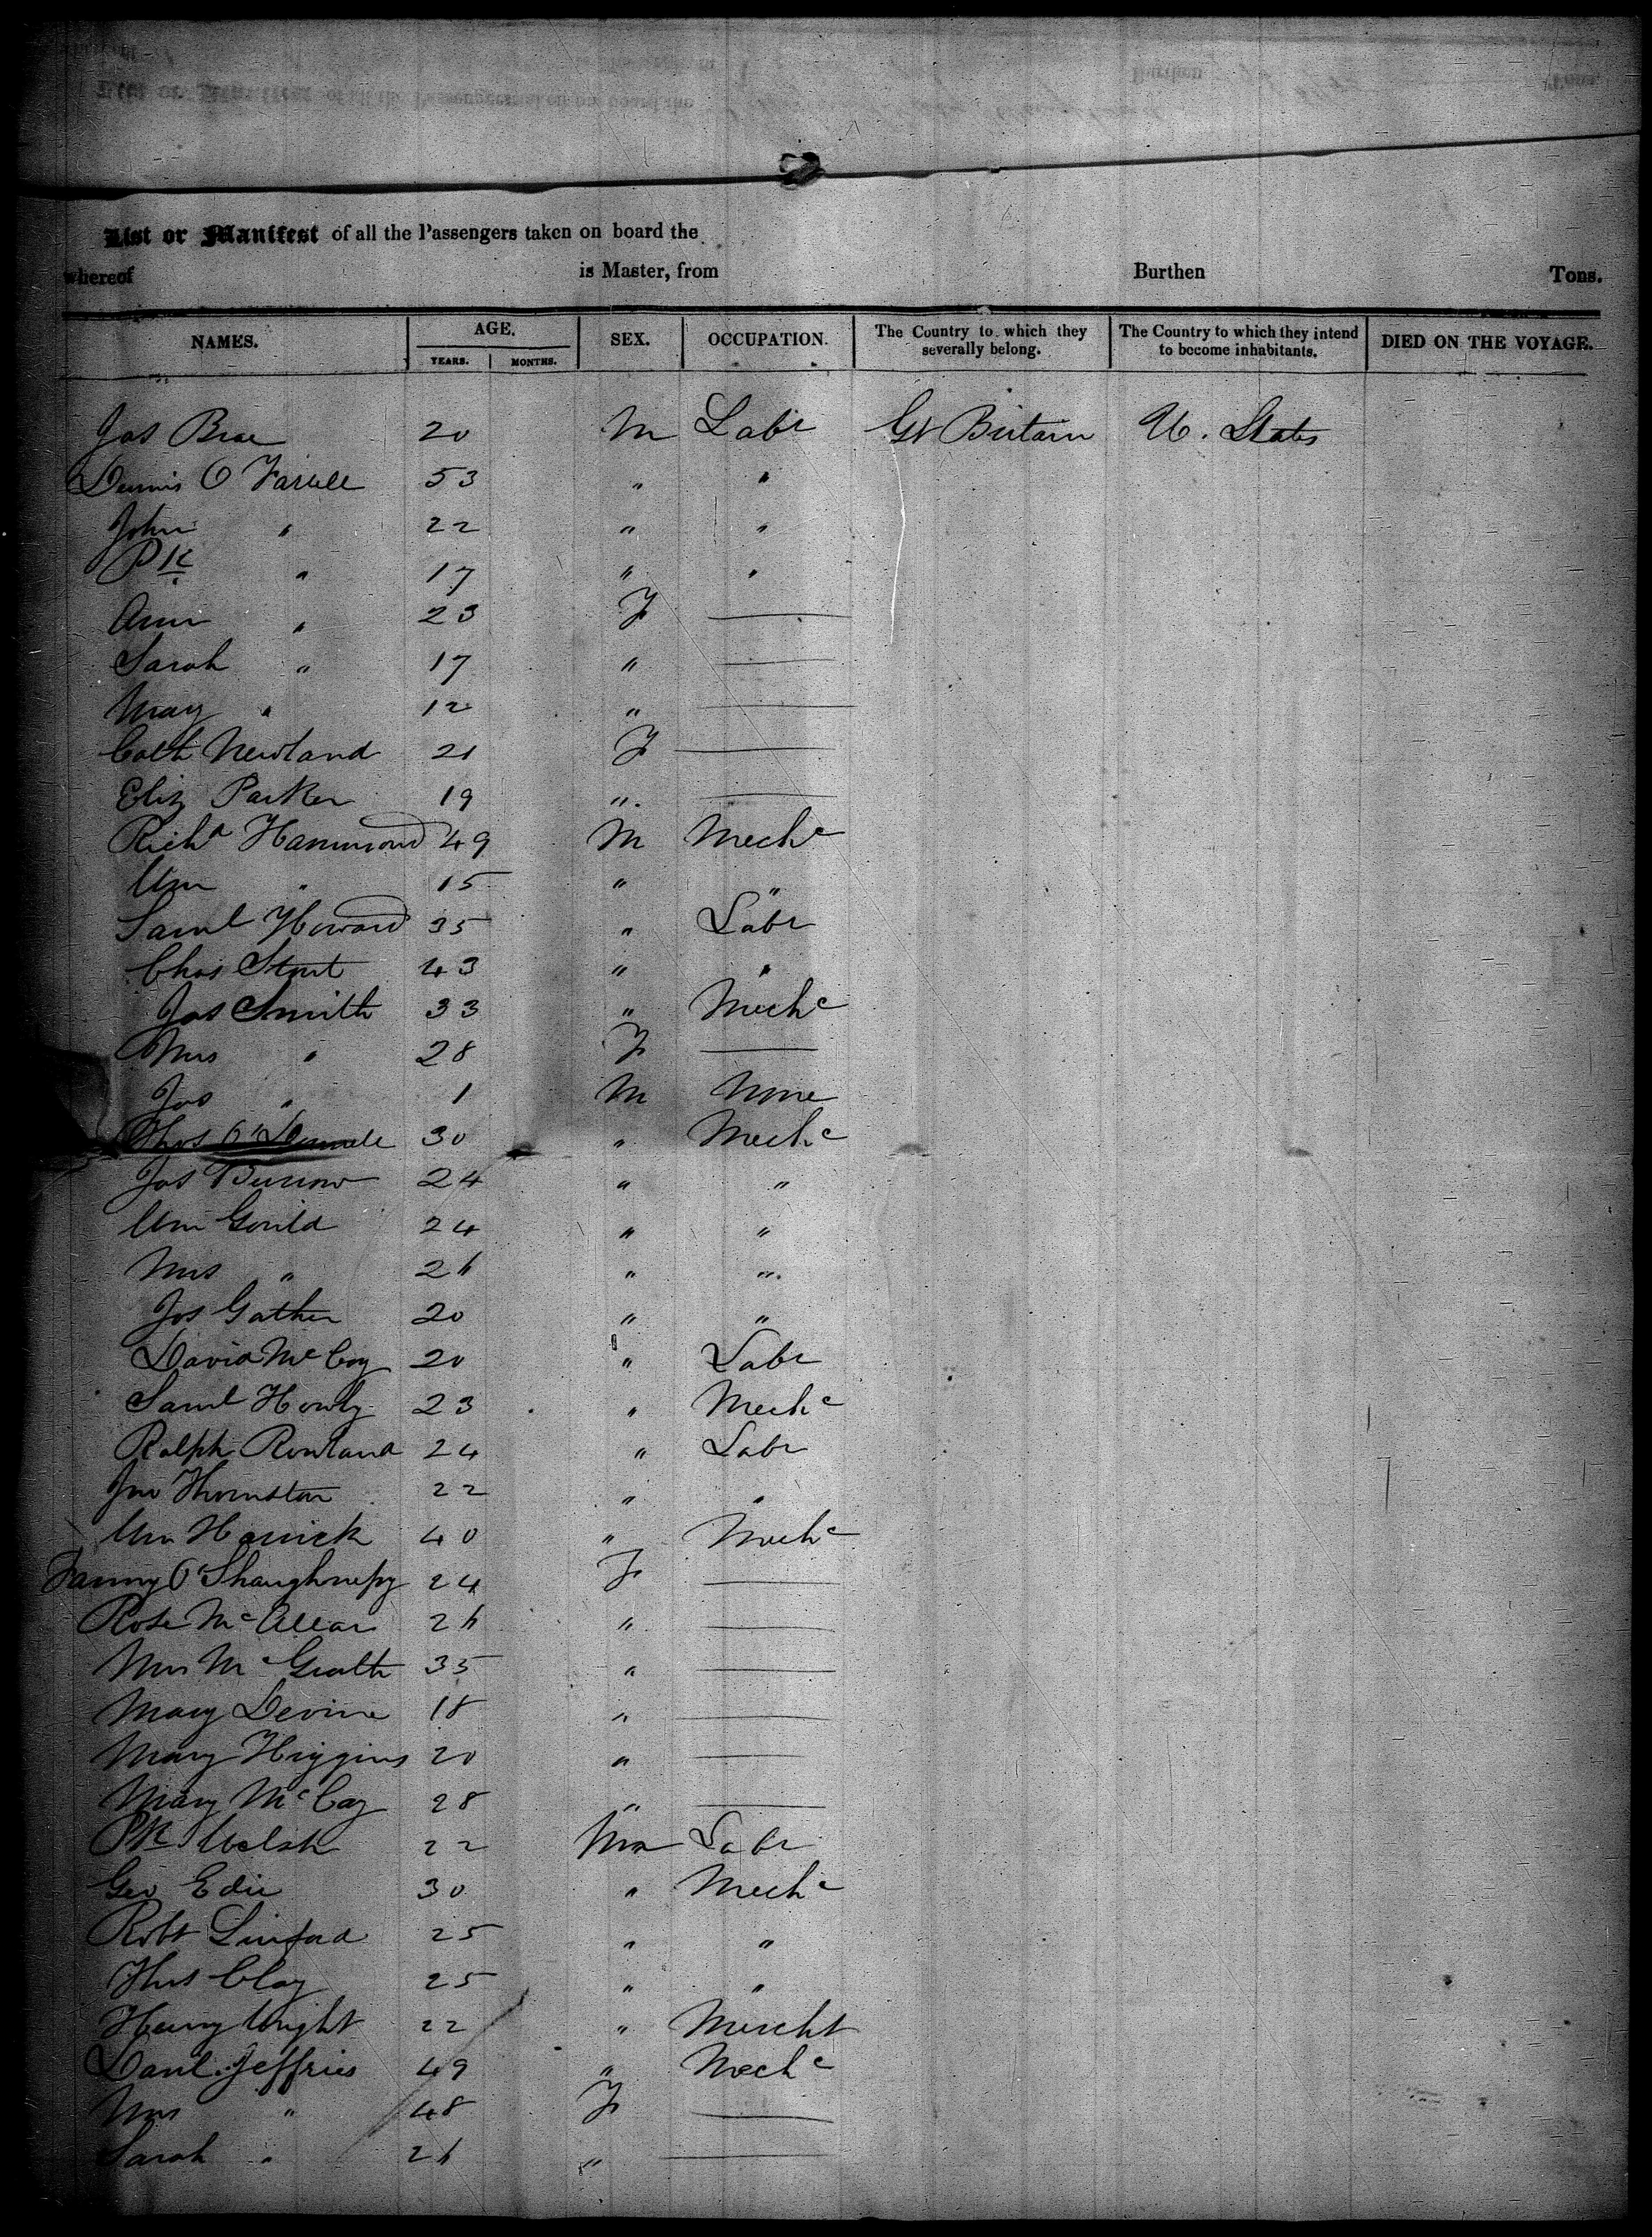 List or Manifest of all the Passengers taken on board the
whereof is Master, from Burthen Tons.
NAMES. AGE. SEX. OCCUPATION. The Country to which they severally belong. The Country to which they intend to become inhabitants. DIED ON THE VOYAGE.
YEARS. MONTHS.
Jas 20 M Labr Gt Britain U. States
Dennis O Farrell 53 " "
John " 22 " "
Pk " 17 " "
Ann " 23 F —
Sarah " 17 " —
Mary " 12 " —
Cath Newland 21 F —
Eliz Parker 19 " —
Richd Hammond 49 M Mechc
Wm " 15 " "
Saml Howard 35 " Labr
Chas 43 " "
Jas Smith 33 " Mechc
Mrs " 28 F —
Jas " 1 M None
Thos O'Donnell 30 " Mechc
Jas Burrow 24 " "
Wm Gould 24 " "
Mrs " 26 " "
Jos Gather 20 " "
David McCoy 20 " Labr
Saml 23 " Mechc
Ralph Rowland 24 " Labr
Jno Thornston 22 " "
Wm 40 " Mechc
Fanny O'Shaughnessy 24 F —
Rose McAllar 26 " —
Mrs McGrath 35 " —
Mary Devine 18 " —
Mary Higgins 20 " —
Mary McCoy 28 " —
Pk Welsh 22 M Labr
Geo Edie 30 " Mechc
Robt Linford 25 " "
Thos Clay 25 " "
Henry Wright 22 " Mercht
Danl Jeffries 49 " Mechc
Mrs " 48 F —
Sarah " 26 " —